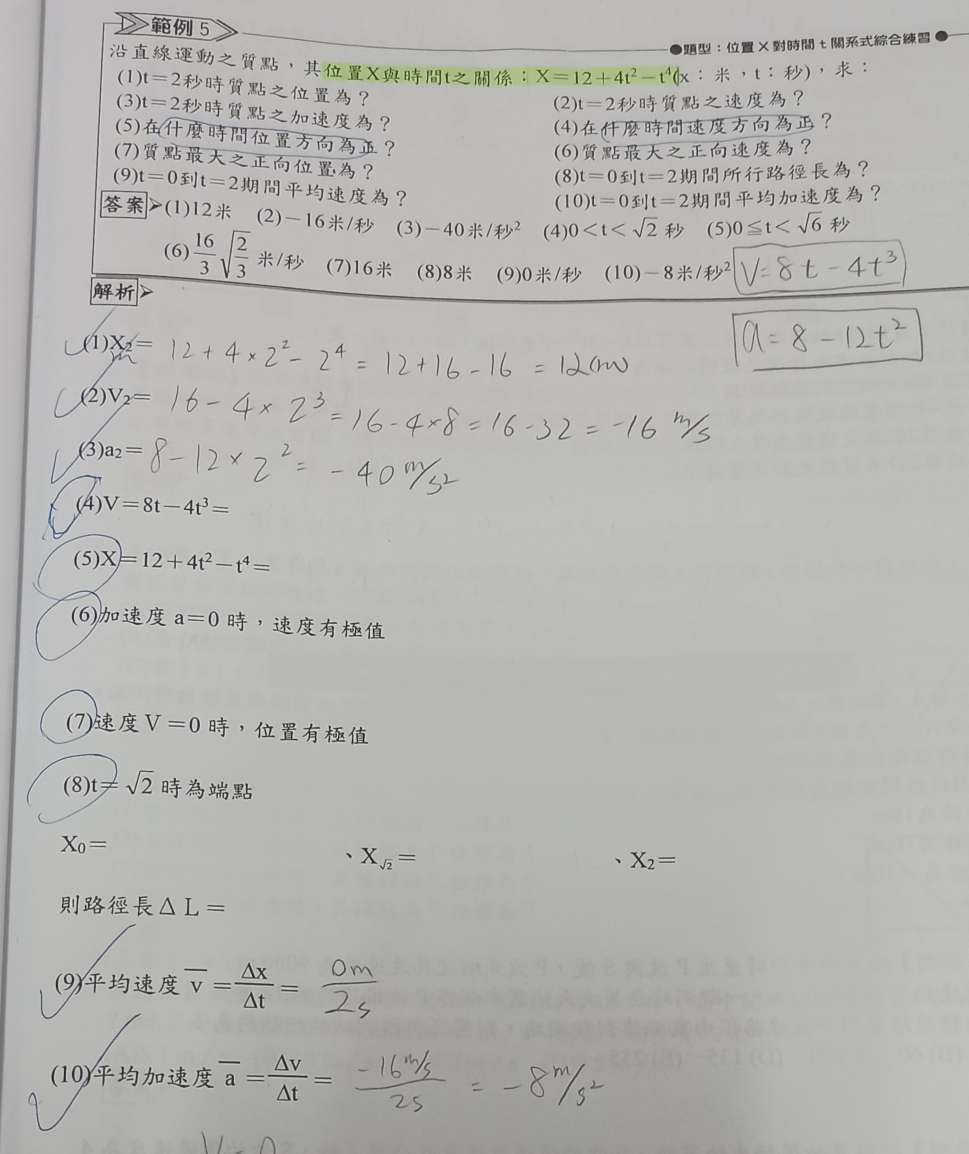 範例 5
●題型：位置 X 對時間 t 關係式綜合練習●
沿直線運動之質點，其位置X與時間t之關係：X＝12＋4t²－t⁴(x：米，t：秒)，求：
(1)t＝2秒時質點之位置為？ (2)t＝2秒時質點之速度為？
(3)t＝2秒時質點之加速度為？ (4)在什麼時間速度方向為正？
(5)在什麼時間位置方向為正？ (6)質點最大之正向速度為？
(7)質點最大之正向位置為？ (8)t＝0到t＝2期間所行路徑長為？
(9)t＝0到t＝2期間平均速度為？ (10)t＝0到t＝2期間平均加速度為？
答案 (1)12米 (2)－16米/秒 (3)－40米/秒² (4)0＜t＜√2 秒 (5)0≦t＜√6 秒
(6)16/3 √(2/3) 米/秒 (7)16米 (8)8米 (9)0米/秒 (10)－8米/秒² V=8t-4t³
解析
a=8-12t²
(1)X₂＝ 12+4×2²-2⁴=12+16-16=12(m)
(2)V₂＝ 16-4×2³=16-4×8=16-32=-16 m/s
(3)a₂＝ 8-12×2²=-40 m/s²
(4)V＝8t－4t³＝
(5)X＝12＋4t²－t⁴＝
(6)加速度 a＝0 時，速度有極值
(7)速度 V＝0 時，位置有極值
(8)t＝√2 時為端點
X₀＝ 、X√2＝ 、X₂＝
則路徑長Δ L＝
(9)平均速度 v̅ ＝Δx/Δt＝ 0m/2s
(10)平均加速度 a̅ ＝Δv/Δt＝ -16 m/s / 2s = -8 m/s²